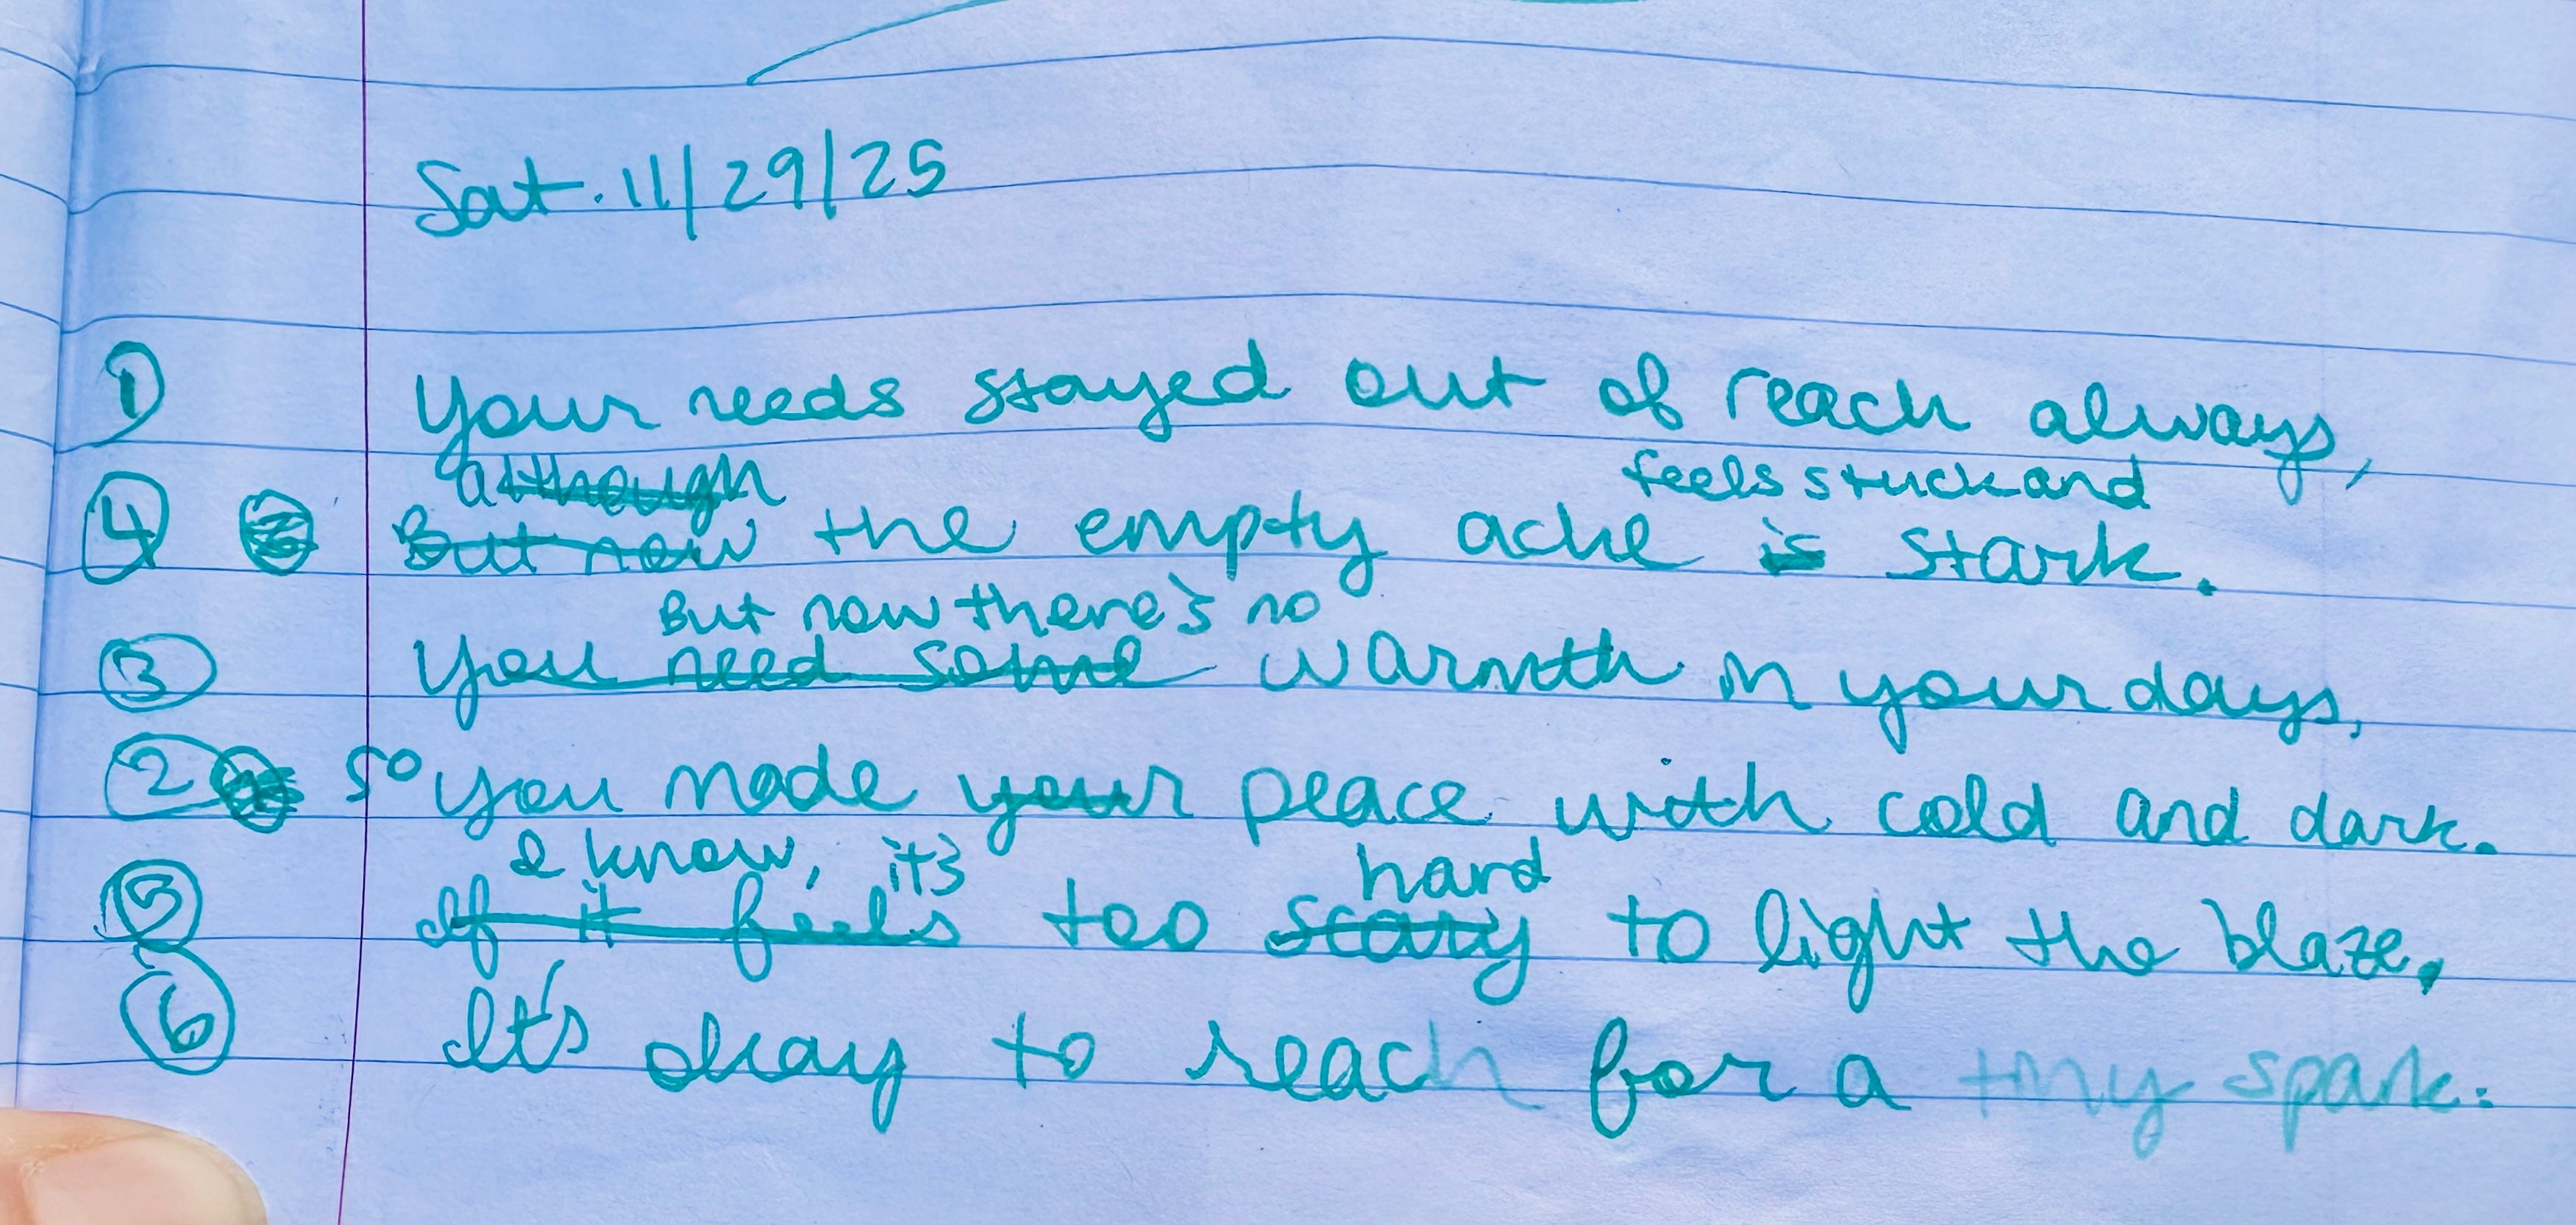 Sat. 11/29/25
① Your needs stayed out of reach always,
although feels stuck and
④ But now the empty ache is stark.
But now there's no
③ You need some warmth in your days,
② so you made your peace with cold and dark.
I know, it's hard
⑤ If it feels too scary to light the blaze,
⑥ It's okay to reach for a tiny spark.